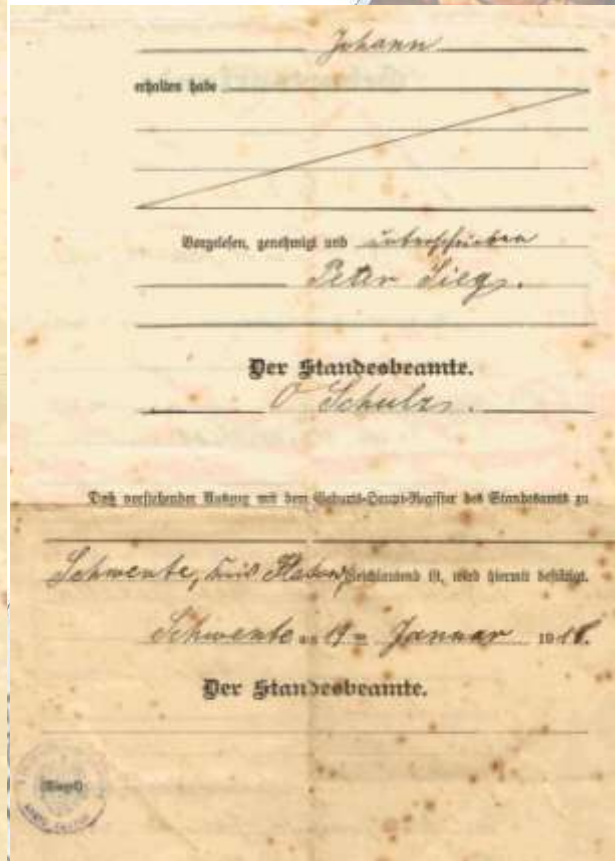 Johann
erhalten habe
Vorgelesen, genehmigt und unterschrieben
Peter Sieg.
Der Standesbeamte.
O Schulz.
Daß vorstehender Auszug mit dem Geburts-Haupt-Register des Standesamts zu
Schwente, Kreis Flatow gleichlautend ist, wird hiermit bestätigt.
Schwente am 19ten Januar 19
Der Standesbeamte.
(Siegel)